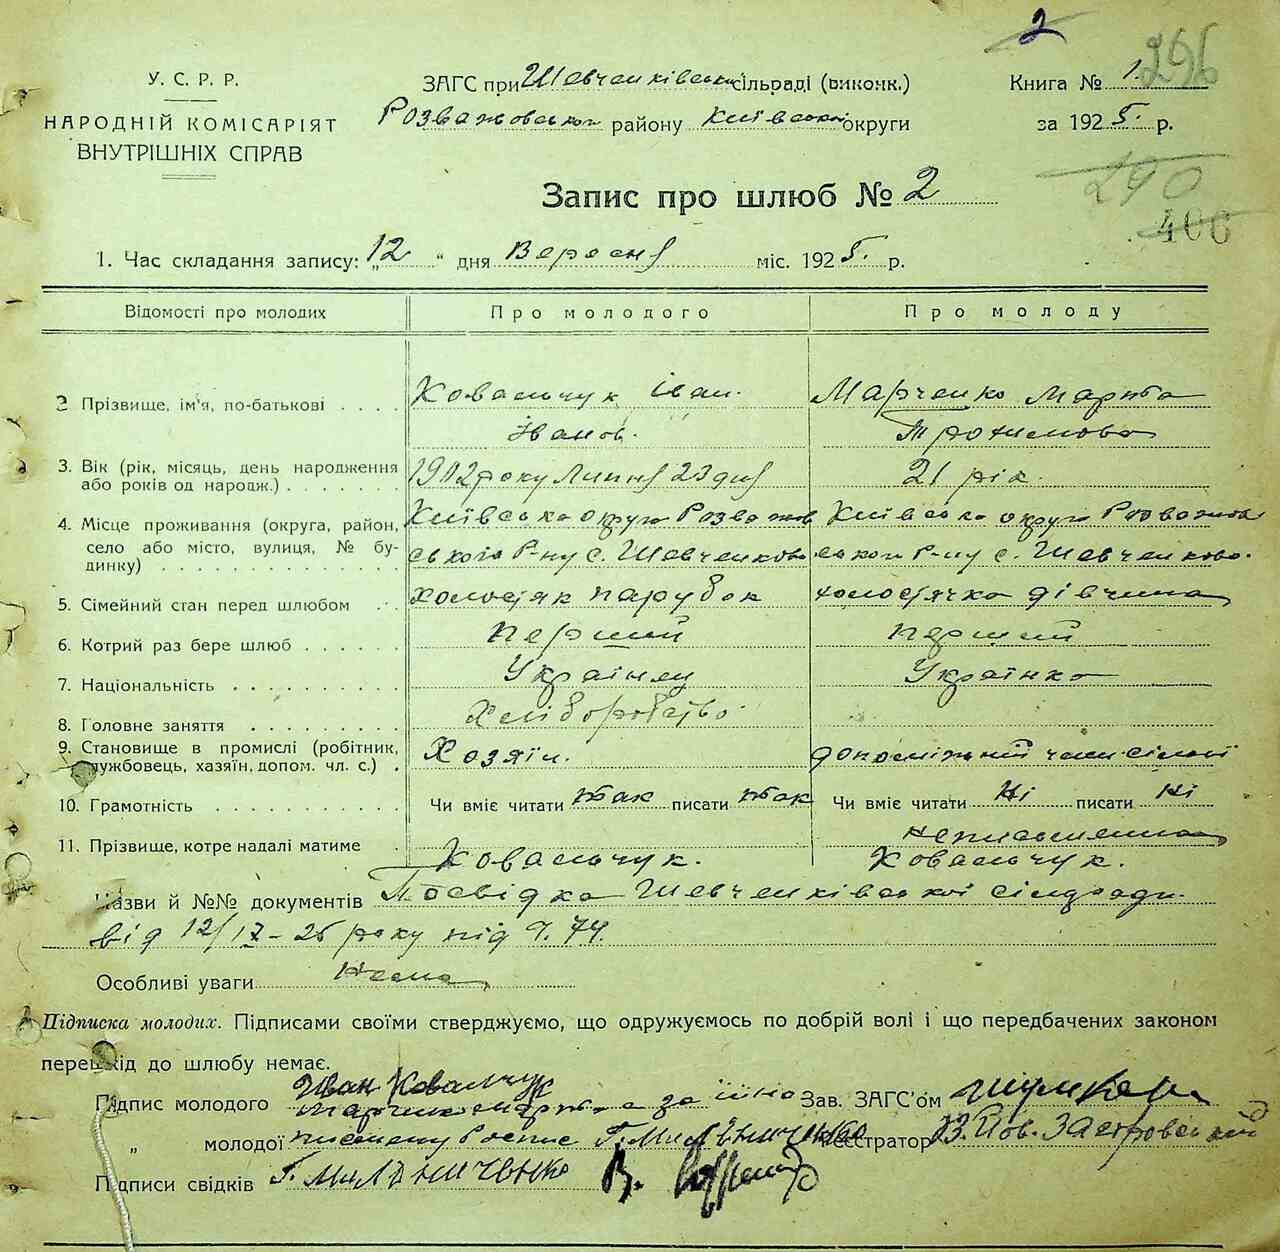 2
296
У. С. Р. Р.
НАРОДНІЙ КОМІСАРІЯТ
ВНУТРІШНІХ СПРАВ
ЗАГС при Шевченківськ сільраді (виконк.)
Розважовськог району Київської округи
Книга № 1.
за 1925. р.
290
406
Запис про шлюб № 2
1. Час складання запису: „12" дня Вересня міс. 1925. р.
Відомості про молодих Про молодого Про молоду
2 Прізвище, ім'я, по-батькові . . . . Ковальчук Іван. Марченко Марта
Іванов. Трохимовна
3. Вік (рік, місяць, день народження 1902 року Липня 23 дня 21 рік.
або років од народж.) . . . . . . .
4. Місце проживання (округа, район, Київська округа Розважов Київська округа Розважов
село або місто, вулиця, № бу- ського Р-ну с. Шевченково ського Р-ну с. Шевченково.
динку) . . . . . . . . . . . . . .
5. Сімейний стан перед шлюбом . . . холостяк парубок холостячка дівчина
6. Котрий раз бере шлюб . . . . . . перший перший
7. Національність . . . . . . . . . . Українец Українка
8. Головне заняття . . . . . . . . . Хліборобство.
9. Становище в промислі (робітник, Хозяїн. допоміжний член сімьї
службовець, хазяїн, допом. чл. с.) .
10. Грамотність . . . . . . . . . . . Чи вміє читати так писати так Чи вміє читати Ні писати Ні
неписьменна
11. Прізвище, котре надалі матиме . Ковальчук. Ковальчук.
Назви й №№ документів Посвідка Шевченківської сілдради
від 12/ - 25 року під Ч. 74.
Особливі уваги Нема
Підписка молодих. Підписами своїми стверджуємо, що одружуємось по добрій волі і що передбачених законом
перешкід до шлюбу немає.
Підпис молодого Іван Ковалчук Зав. ЗАГС'ом
Марченко Марта а за її
„ молодої Роспис Г. Мильниченко Реєстратор Застровський
Підписи свідків Г. Мильниченко В.